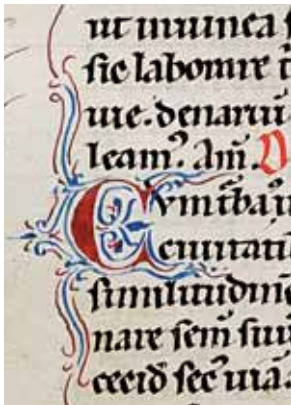 ut inuinea s
sic laborare t̄
uie. denariū
leam᷑. Am̄. D
CVm t̄ba
e ciuitati
similitudine
nare sem̄ suu
cecid̄ secꝰ uia